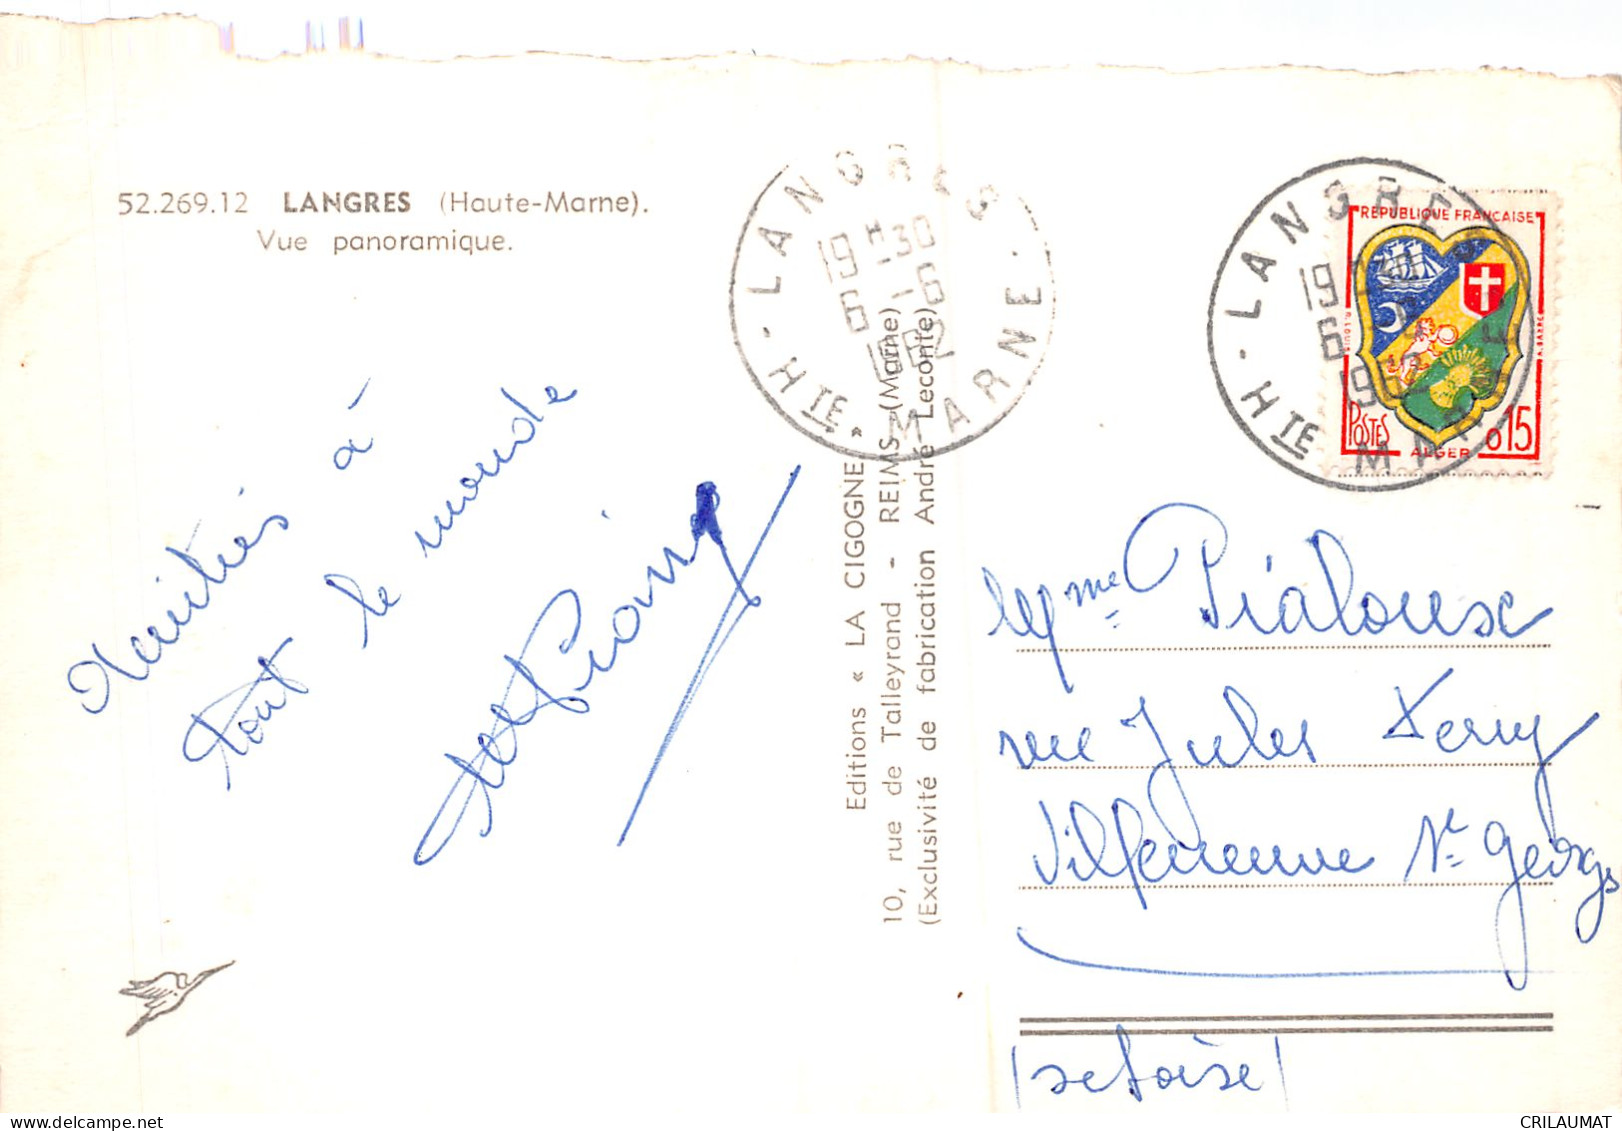 52.269.12 LANGRES (Haute-Marne).
Vue panoramique.
Amitiés à
tout le monde
Editions « LA CIGOGNE »
10, rue de Talleyrand - REIMS (Marne)
(Exclusivité de fabrication André Leconte)
LANGRES
19 H 30
6 - 6
1962
HTE MARNE
LANGRES
19
6
196
HTE MAR
REPUBLIQUE FRANÇAISE
POSTES
ALGER
0,15
Mme Pialoux
rue Jules Ferry
Villeneuve St Georges
(Set Oise)
CRILAUMAT